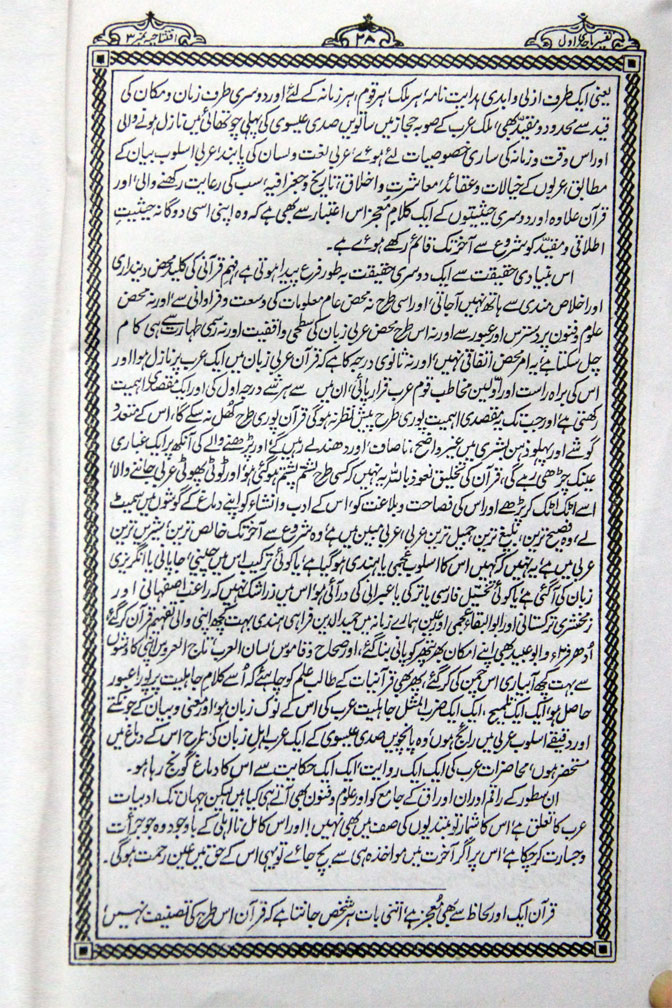 تفسیر ماجدی اول
۲۸
افتتاحیہ نمبر ۳
یعنی ایک طرف ازلی و ابدی ہدایت نامہ، ہر ملک، ہر قوم، ہر زمانہ کے لئے اور دوسری طرف زمان و مکان کی
قید سے محدود و مقید بھی، ملک عرب کے صوبہ حجاز میں ساتویں صدی عیسوی کی پہلی چوتھائی میں نازل ہونے والی
اور اس وقت و زمانہ کی ساری خصوصیات لئے ہوئے، عربی لغت و لسان کی پابند، عربی اسلوب بیان کے
مطابق، عربوں کے خیالات و عقائد، معاشرت و اخلاق، تاریخ و جغرافیہ، سب کی رعایت رکھنے والی، اور
قرآن علاوہ اور دوسری حیثیتوں کے ایک کلام معجز اس اعتبار سے بھی ہے کہ وہ اپنی اسی دوگانہ حیثیتِ
اطلاقی و مقیدّ کو شروع سے آخر تک قائم رکھے ہوئے ہے۔
اس بنیادی حقیقت سے ایک دوسری حقیقت بہ طور فرع پیدا ہوتی ہے، فہم قرآنی کی کلید محض دینداری
اور اخلاص مندی سے ہاتھ نہیں آجاتی، اور اسی طرح نہ محض عام معلومات کی وسعت و فراوانی سے، اور نہ محض
علوم و فنون پر دسترس اور عبور سے اور نہ اس طرح محض عربی زبان کی سطحی واقفیت اور نہ رسمی طہارت سے ہی کام
چل سکتا ہے، یہ امر محض اتفاقی نہیں، اور نہ ثانوی درجہ کا ہے کہ قرآن عربی زبان میں ایک عرب پر نازل ہوا اور
اس کی براہ راست اور اوّلین مخاطب قوم عرب قرار پائی، ان میں سے ہر شے درجہ اول کی اور ایک مقصدی اہمیت
رکھتی ہے، اور جب تک یہ مقصدی اہمیت پوری طرح پیش نظر نہ ہوگی قرآن پوری طرح کھُل نہ سکے گا، اس کے متعدد
گوشے اور پہلو ذہن بشری میں غیر واضح، ناصاف، اور دھندلے رہیں گے، اور پڑھنے والے کی آنکھ پر ایک غباری
عینک چڑھی رہے گی، قرآن کی تخلیق نعوذ باللہ یہ نہیں کہ کسی طرح لشتم پشتم ہوگئی ہو، اور ٹوٹی پھوٹی عربی جاننے والا،
اسے اٹک اٹک کر پڑھے اور اس کی فصاحت و بلاغت کو، اس کے ادب و انشاء کو اپنے دماغ کے گوشوں میں سمیٹ
لے، وہ فصیح ترین، بلیغ ترین، جمیل ترین عربی، عربی مبین میں ہے، وہ شروع سے آخر تک خالص ترین، شیریں ترین
عربی میں ہے، یہ نہیں کہ کہیں اس کا اسلوب عجمی یا ہندی ہوگیا ہے، یا کوئی ترکیب اس میں چینی، جاپانی یا انگریزی
زبان کی آگئی ہے، یا کوئی تخئیل فارسی یا ترکی یا عبرانی کی در آئی ہو، اس میں ذرا شک نہیں کہ راغب اصفہانی اور
زمخشری ترکستانی اور ابو البقاء عجمی اور عین ہمارے زمانہ میں حمید الدین فراہی ہندی بہت کچھ اپنی والی تفہیم قرآن کر گئے،
اُدھر فرّاء و ابوعبید بھی اپنے امکان بھر پتھر کو پانی بنا گئے، اور صحاح و قاموس، لسان العرب، تاج العروس اپنی کاوشوں
سے بہت کچھ آبیاری اس چمن کی کر گئے، پھر بھی قرآنیات کے طالب علم کو چاہئے کہ اُسے کلامِ جاہلیت پر پورا عبور
حاصل ہو، ایک ایک تلمیح، ایک ایک ضرب المثل جاہلیت عرب کی اس کے نوک زبان ہو، اور معنی و بیان کے جو نکتے
اور دقیقے اسلوب عربی میں رائج ہوں، وہ پانچویں صدی عیسوی کے ایک عرب اہل زبان کی طرح اس کے دماغ میں
مستحضر ہوں، محاضرات عرب کی ایک ایک روایت، ایک ایک حکایت سے اس کا دماغ گونج رہا ہو۔
ان سطور کے راقم اور ان اوراق کے جامع کو اور علوم و فنون بھی آتے ہی کیا ہیں لیکن جہاں تک ادبیات
عرب کا تعلق ہے، اس کا شمار تو مبتدیوں کی صف میں بھی نہیں! اور اس کامل نااہلی کے باوجود وہ جو جرأت
و جسارت کر چکا ہے، اس پر اگر آخرت میں مواخذہ ہی سے بچ جائے تو یہی اس کے حق میں عین رحمت ہوگی۔
قرآن ایک اور لحاظ سے بھی مُعجز ہے، اتنی بات ہر شخص جانتا ہے کہ قرآن اس طرح کی تصنیف نہیں،